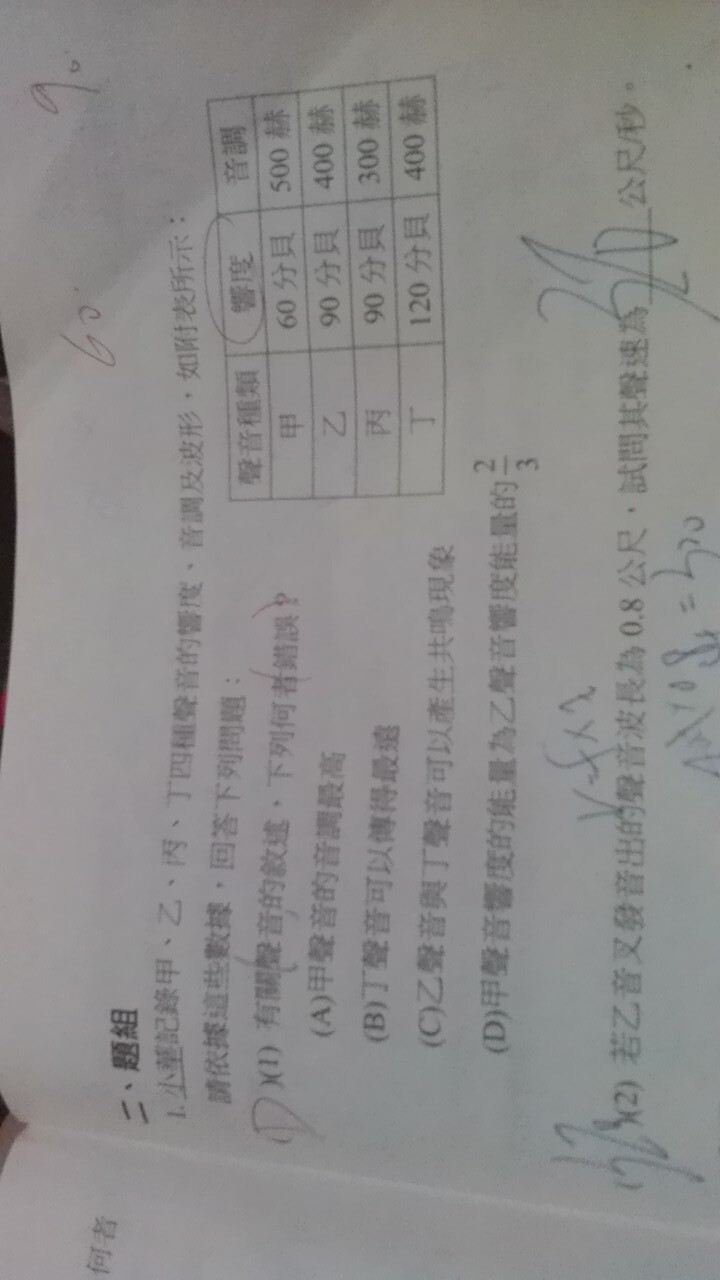 何者
二、題組
60
90
1. 小華記錄甲、乙、丙、丁四種聲音的響度、音調及波形，如附表所示：
請依據這些數據，回答下列問題：
聲音種類 響度 音調
甲 60 分貝 500 赫
乙 90 分貝 400 赫
丙 90 分貝 300 赫
丁 120 分貝 400 赫
(D)(1) 有關聲音的敘述，下列何者錯誤？
(A)甲聲音的音調最高
(B)丁聲音可以傳得最遠
(C)乙聲音與丁聲音可以產生共鳴現象
(D)甲聲音響度的能量為乙聲音響度能量的 2/3
V=f×λ
( )(2) 若乙音叉發音出的聲音波長為 0.8 公尺，試問其聲速為 公尺/秒。